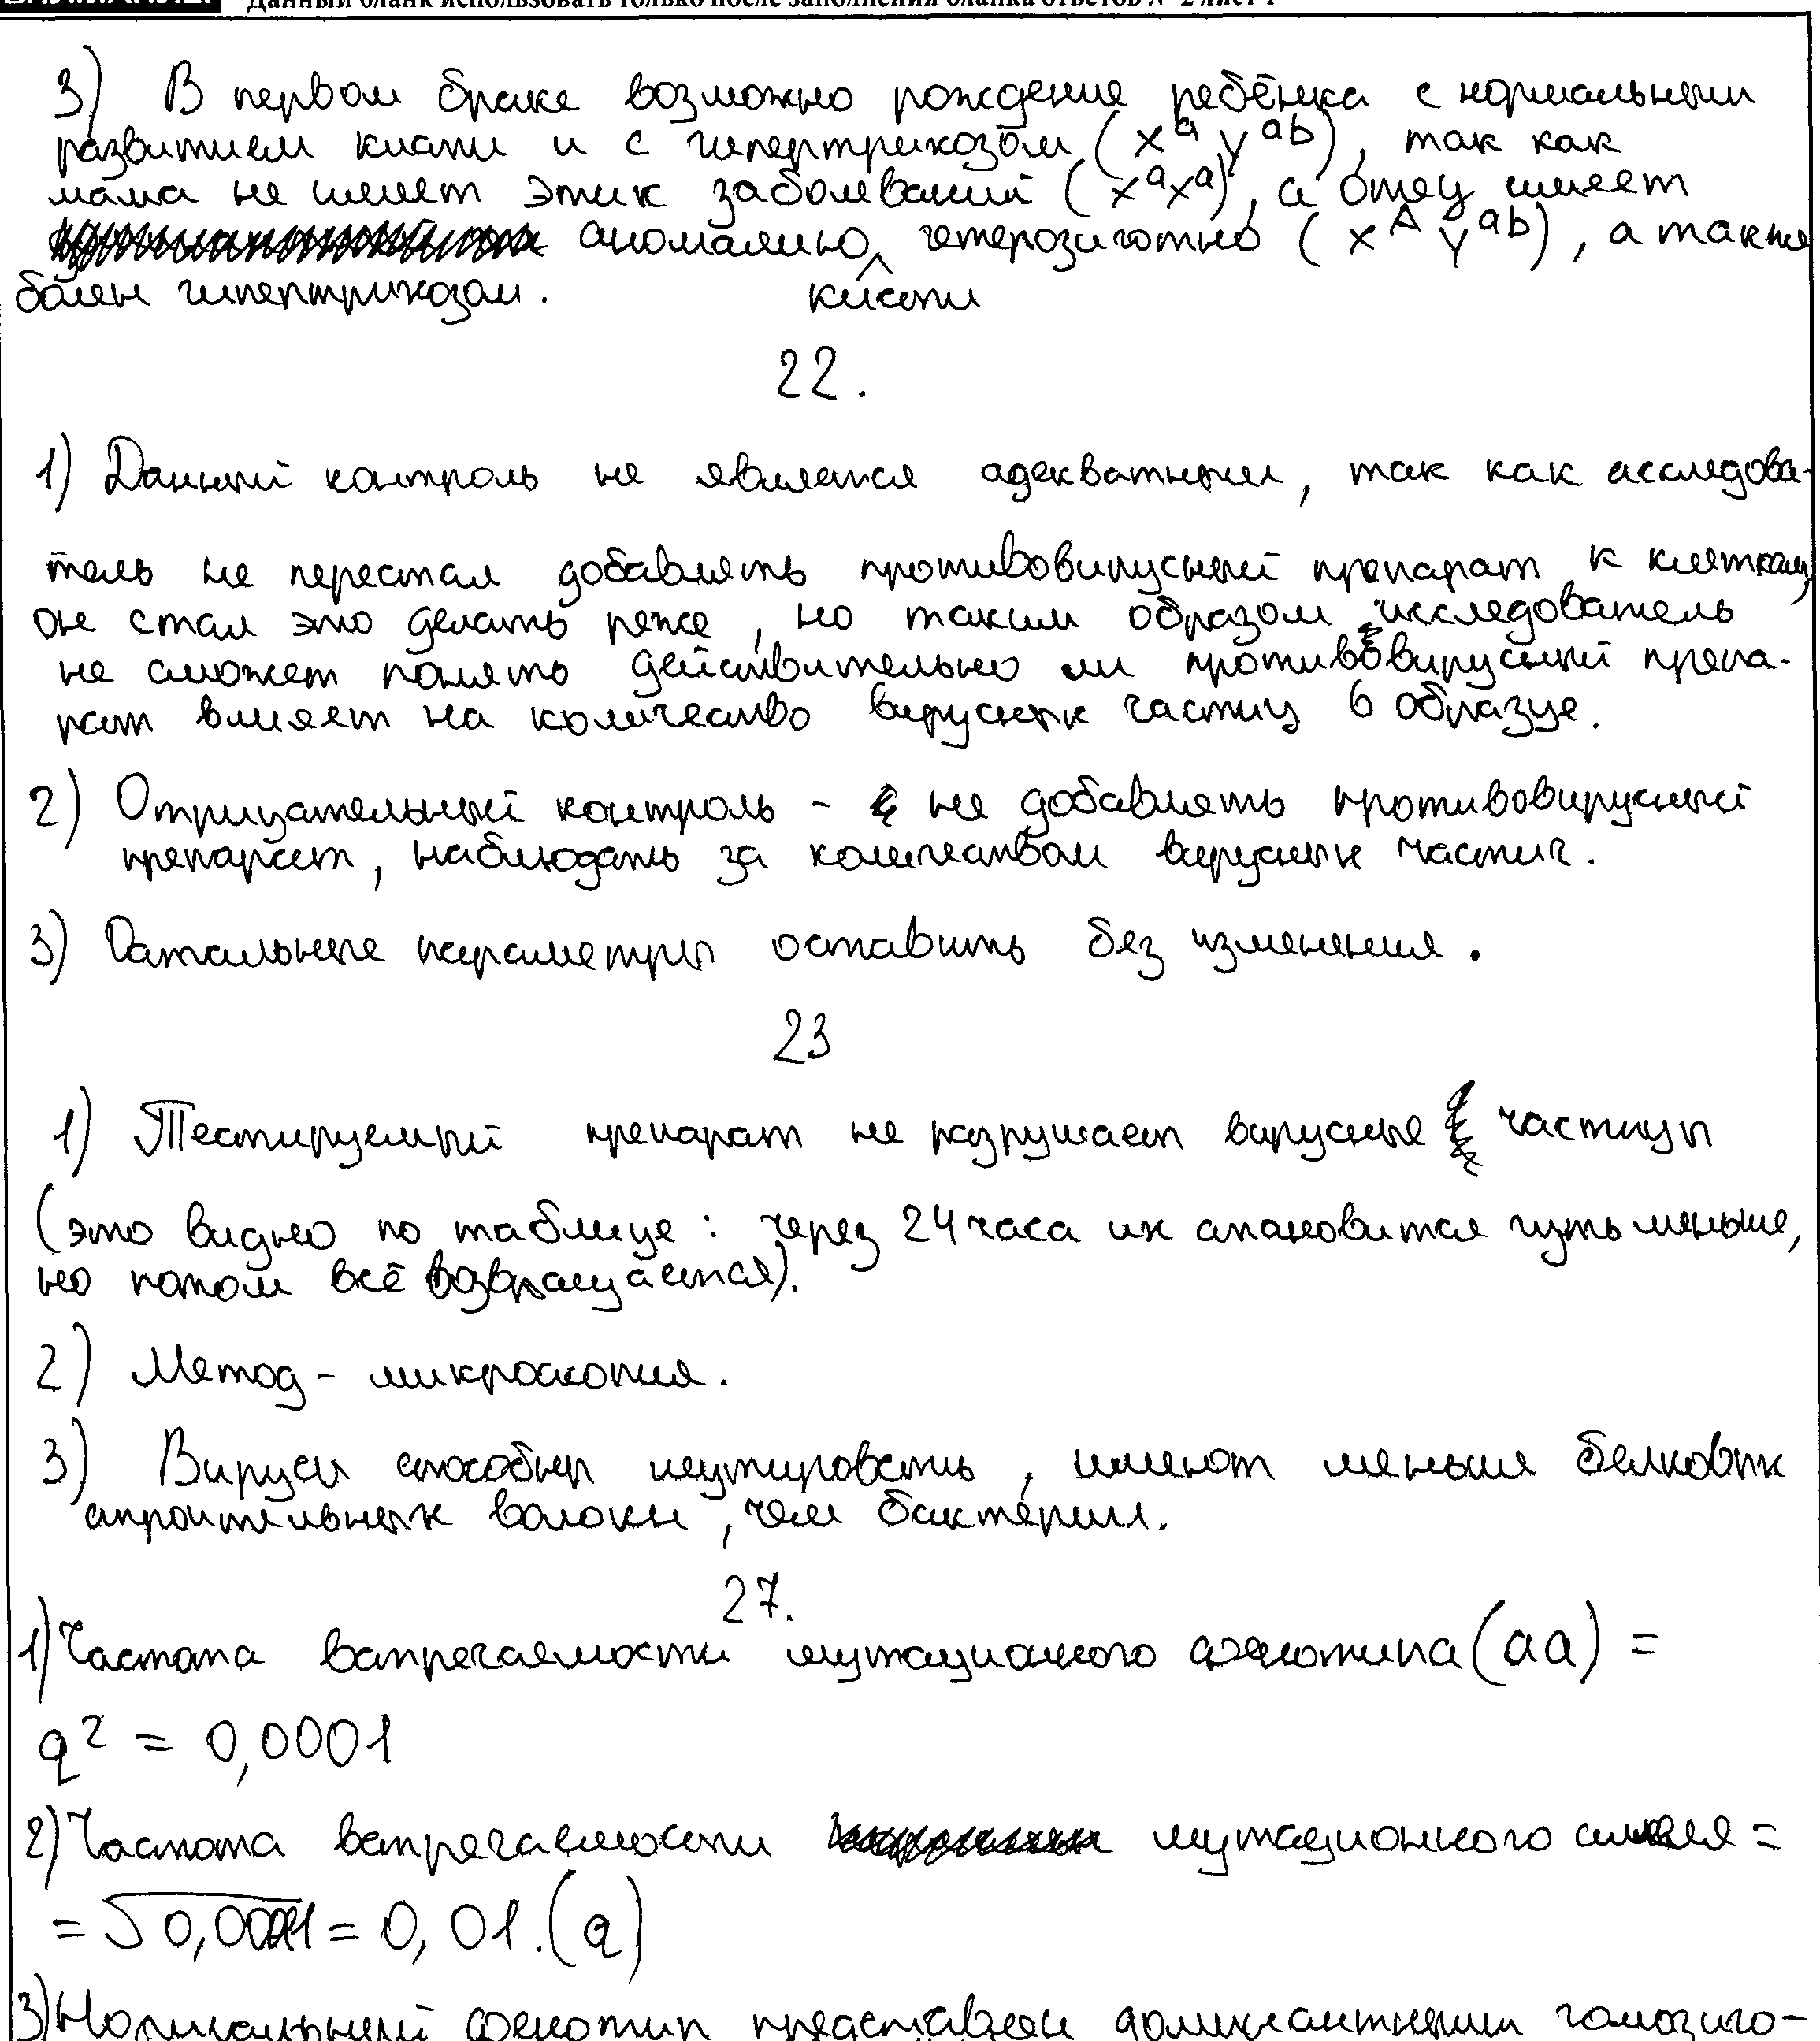 Данный бланк использовать только после заполнения бланка ответов № 2 лист 1
3) В первом браке возможно рождение ребёнка с нормальным
развитием кисти и с гипертрихозом (xᵃ yᵃᵇ), так как
мама не имеет этих заболеваний (xᵃxᵃ), а отец имеет
аномалию кисти гетерозиготно (xᴬ yᵃᵇ), а также
болен гипертрихозом.
22.
1) Данный контроль не является адекватным, так как исследова-
тель не перестал добавлять противовирусный препарат к клеткам,
он стал это делать реже, но таким образом исследователь
не сможет понять действительно ли противовирусный препа-
рат влияет на количество вирусных частиц в образце.
2) Отрицательный контроль - не добавлять противовирусный
препарат, наблюдать за количеством вирусных частиц.
3) Остальные параметры оставить без изменения.
23
1) Тестируемый препарат не разрушает вирусные частицы
(это видно по таблице: через 24 часа их становится чуть меньше,
но потом всё возвращается).
2) Метод - микроскопия.
3) Вирусы способны мутировать, имеют меньше белковых
строительных волокн, чем бактерии.
27.
1) Частота встречаемости мутационного фенотипа (aa) =
q² = 0,0001
2) Частота встречаемости мутационного аллеля =
= √0,0001 = 0,01. (q)
3) Нормальный фенотип представлен доминантными гомозиго-